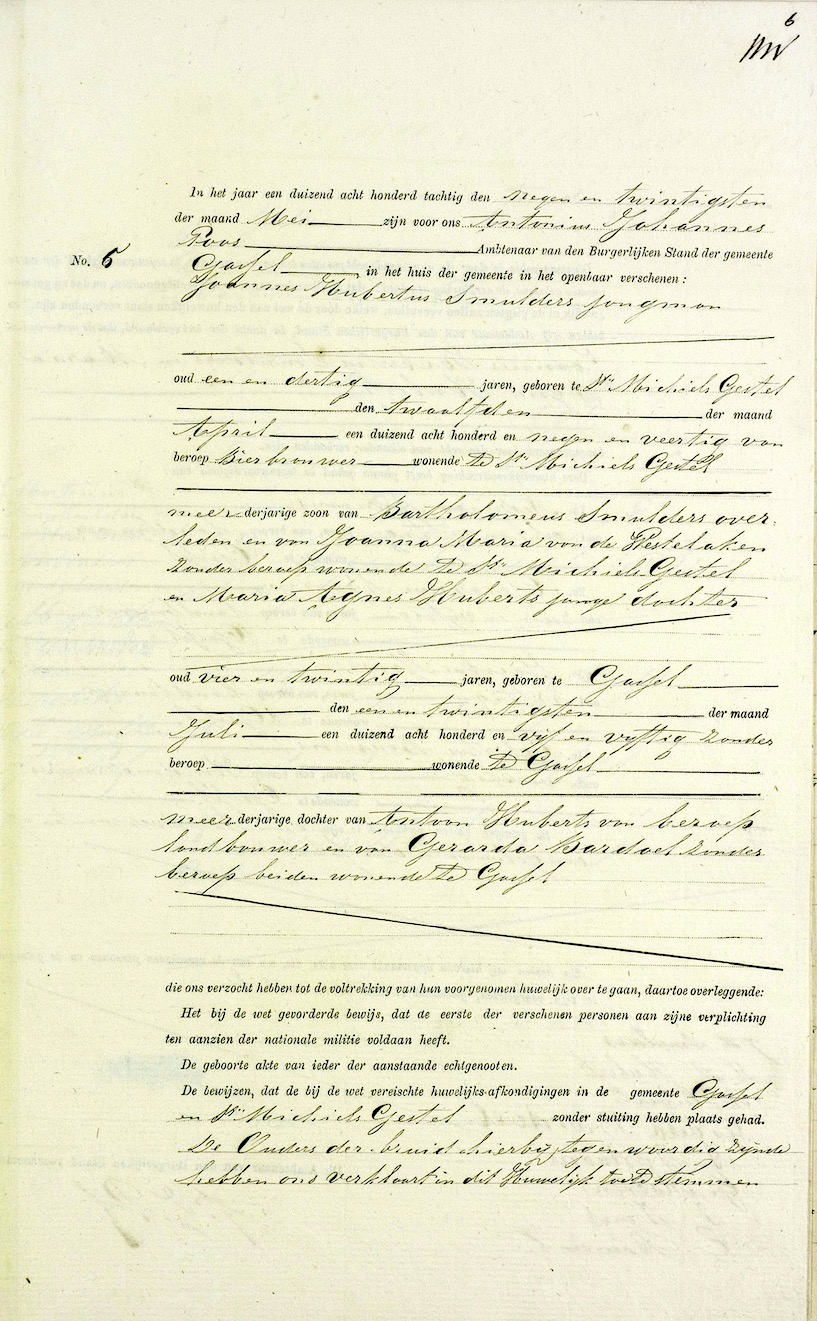 6
In het jaar een duizend acht honderd tachtig den negen en twintigsten
der maand Mei zijn voor ons Antonius Johannes
Poos Ambtenaar van den Burgerlijken Stand der gemeente
No. 6
Gassel in het huis der gemeente in het openbaar verschenen:
Joannes Hubertus Smulders jongman
oud een en dertig jaren, geboren te St. Michiels Gestel
den twaalfden der maand
April een duizend acht honderd en negen en veertig van
beroep Bierbrouwer wonende te St. Michiels Gestel
meer derjarige zoon van Bartholomeus Smulders over:
leden en van Joanna Maria van de Westelaken
zonder beroep wonende te St. Michiels Gestel
en Maria Agnes Huberts jonge dochter
oud vier en twintig jaren, geboren te Gassel
den een en twintigsten der maand
Juli een duizend acht honderd en vijf en vijftig zonder
beroep wonende te Gassel
meer derjarige dochter van Antoon Huberts van beroep
landbouwer en van Gerarda Bardoel zonder
beroep beiden wonende te Gassel
die ons verzocht hebben tot de voltrekking van hun voorgenomen huwelijk over te gaan, daartoe overleggende:
Het bij de wet gevorderde bewijs, dat de eerste der verschenen personen aan zijne verplichting
ten aanzien der nationale militie voldaan heeft.
De geboorte akte van ieder der aanstaande echtgenooten.
De bewijzen, dat de bij de wet vereischte huwelijks-afkondigingen in de gemeente Gassel
en St. Michiels Gestel zonder stuiting hebben plaats gehad.
De Ouders der bruid hierbij tegenwoordig zijnde
hebben ons verklaart in dit Huwelijk toe te stemmen